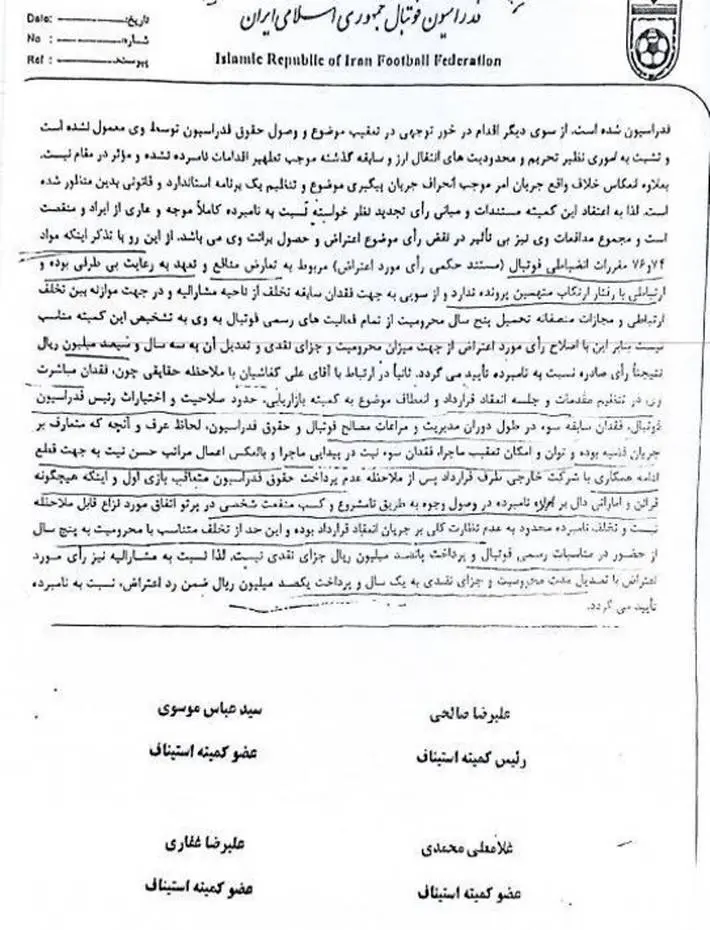 Date: تاریخ:
No : شماره:
Ref : پیوست:
فدراسیون فوتبال جمهوری اسلامی ایران
Islamic Republic of Iran Football Federation
فدراسیون شده است. از سوی دیگر اقدام در خور توجهی در تعقیب موضوع و وصول حقوق فدراسیون توسط وی معمول نشده است
و تشبث به اموری نظیر تحریم و محدودیت های انتقال ارز و سابقه گذشته موجب تطهیر اقدامات نامبرده نشده و مؤثر در مقام نیست.
بعلاوه انعکاس خلاف واقع جریان امر موجب انحراف جریان پیگیری موضوع و تنظیم یک برنامه استاندارد و قانونی بدین منظور شده
است. لذا به اعتقاد این کمیته مستندات و مبانی رأی تجدید نظر خواسته نسبت به نامبرده کاملاً موجه و عاری از ایراد و منقصت
است و مجموع مدافعات وی نیز بی تأثیر در نقض رأی موضوع اعتراض و حصول برائت وی می باشد. از این رو با تذکر اینکه مواد
۷۴ و ۷۶ مقررات انضباطی فوتبال (مستند حکمی رأی مورد اعتراض) مربوط به تعارض منافع و تعهد به رعایت بی طرفی بوده و
ارتباطی با رفتار ارتکاب متهمین پرونده ندارد و از سویی به جهت فقدان سابقه تخلف از ناحیه مشارالیه و در جهت موازنه بین تخلف
ارتباطی و مجازات منصفانه تحمیل پنج سال محرومیت از تمام فعالیت های رسمی فوتبال به وی به تشخیص این کمیته مناسب
نیست بنابر این با اصلاح رأی مورد اعتراض از جهت میزان محرومیت و جزای نقدی و تعدیل آن به سه سال و سیصد میلیون ریال
نتیجتاً رأی صادره نسبت به نامبرده تأیید می گردد. ثانیاً در ارتباط با آقای علی کفاشیان با ملاحظه حقایقی چون، فقدان مباشرت
وی در تنظیم مقدمات و جلسه انعقاد قرارداد و انعطاف موضوع به کمیته بازاریابی، حدود صلاحیت و اختیارات رئیس فدراسیون
فوتبال، فقدان سابقه سوء در طول دوران مدیریت و مراعات مصالح فوتبال و حقوق فدراسیون، لحاظ عرف و آنچه که متعارف بر
جریان قضیه بوده و توان و امکان تعقیب ماجرا، فقدان سوء نیت در پیدایی ماجرا و بالعکس اعمال مراتب حسن نیت به جهت قطع
ادامه همکاری با شرکت خارجی طرف قرارداد پس از ملاحظه عدم پرداخت حقوق فدراسیون متعاقب بازی اول و اینکه هیچگونه
قرائن و اماراتی دال بر نامبرده در وصول وجوه به طریق نامشروع و کسب منفعت شخصی در پرتو اتفاق مورد نزاع قابل ملاحظه
نیست و تخلف نامبرده محدود به عدم نظارت کلی بر جریان انعقاد قرارداد بوده و این حد از تخلف متناسب با محرومیت به پنج سال
از حضور در مناسبات رسمی فوتبال و پرداخت پانصد میلیون ریال جزای نقدی نیست. لذا نسبت به مشارالیه نیز رأی مورد
اعتراض با تعدیل مدت محرومیت و جزای نقدی به یک سال و پرداخت یکصد میلیون ریال ضمن رد اعتراض، نسبت به نامبرده
تأیید می گردد.
علیرضا صالحی
سید عباس موسوی
رئیس کمیته استیناف
عضو کمیته استیناف
غلامعلی محمدی
علیرضا غفاری
عضو کمیته استیناف
عضو کمیته استیناف